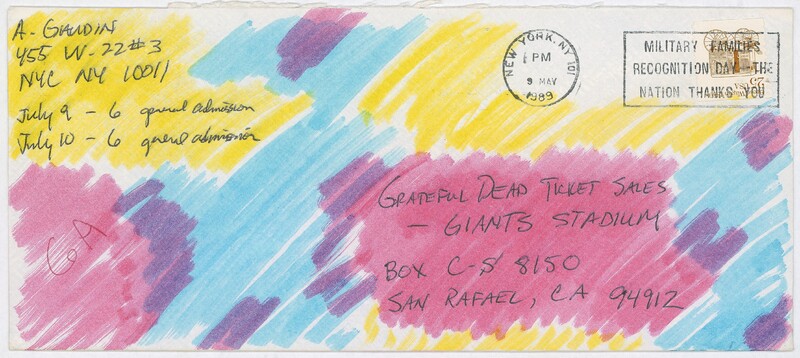 A. GAUDIN
455 W. 22 #3
NYC NY 10011
July 9 - 6 general admission
July 10 - 6 general admission
NEW YORK, NY 101
PM
9 MAY
1989
MILITARY FAMILIES
RECOGNITION DAY - THE
NATION THANKS YOU
25
GA
GRATEFUL DEAD TICKET SALES
- GIANTS STADIUM
BOX C-S 8150
SAN RAFAEL, CA 94912